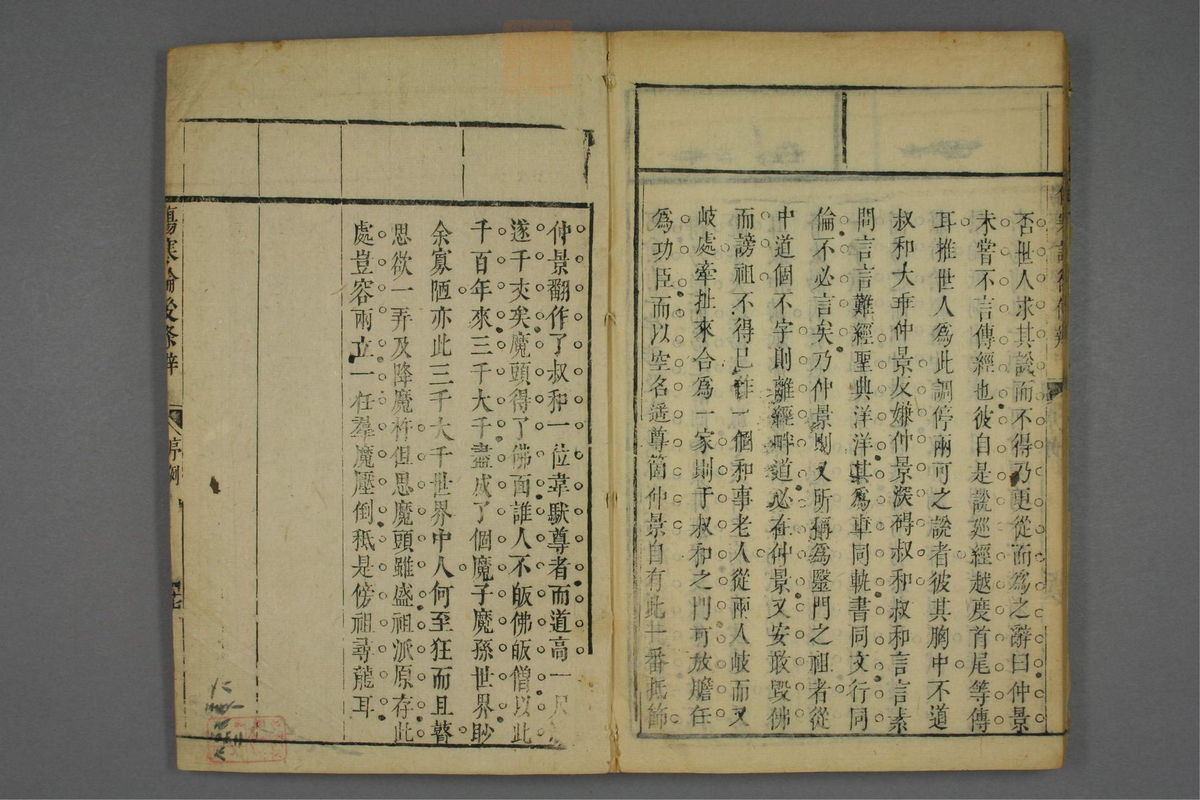 否世人求其說而不得乃更從而為之辭曰仲景
未嘗不言傳經也彼自是說廵經越度首尾等傳
耳推世人為此調停兩可之說者彼其胸中不道
叔和大乖仲景反嫌仲景深碍叔和叔和言言素
問言言難經聖典洋洋甚為車同軌書同文行同
倫不必言矣乃仲景則又所稱為醫門之祖者從
中道個不字則離經畔道必在仲景又安敢毀佛
而謗祖不得已作一個和事老人從兩人岐而又
岐處牽扯來合為一家則于叔和之門可放膽任
為功臣而以空名遥尊箇仲景自有此一番抵飾
仲景翻作了叔和一位韋馱尊者而道高一尺
遂千丈矣魔頭得了佛面誰人不皈佛皈僧以此
千百年來三千大千盡成了個魔子魔孫世界眇
余寡陋亦此三千大千世界中人何至狂而且瞽
思欲一弄及降魔杵但思魔頭雖盛祖派原存此
處豈容兩立一任羣魔壓倒秪是傍祖尋龍耳
傷寒論後條辨 序例